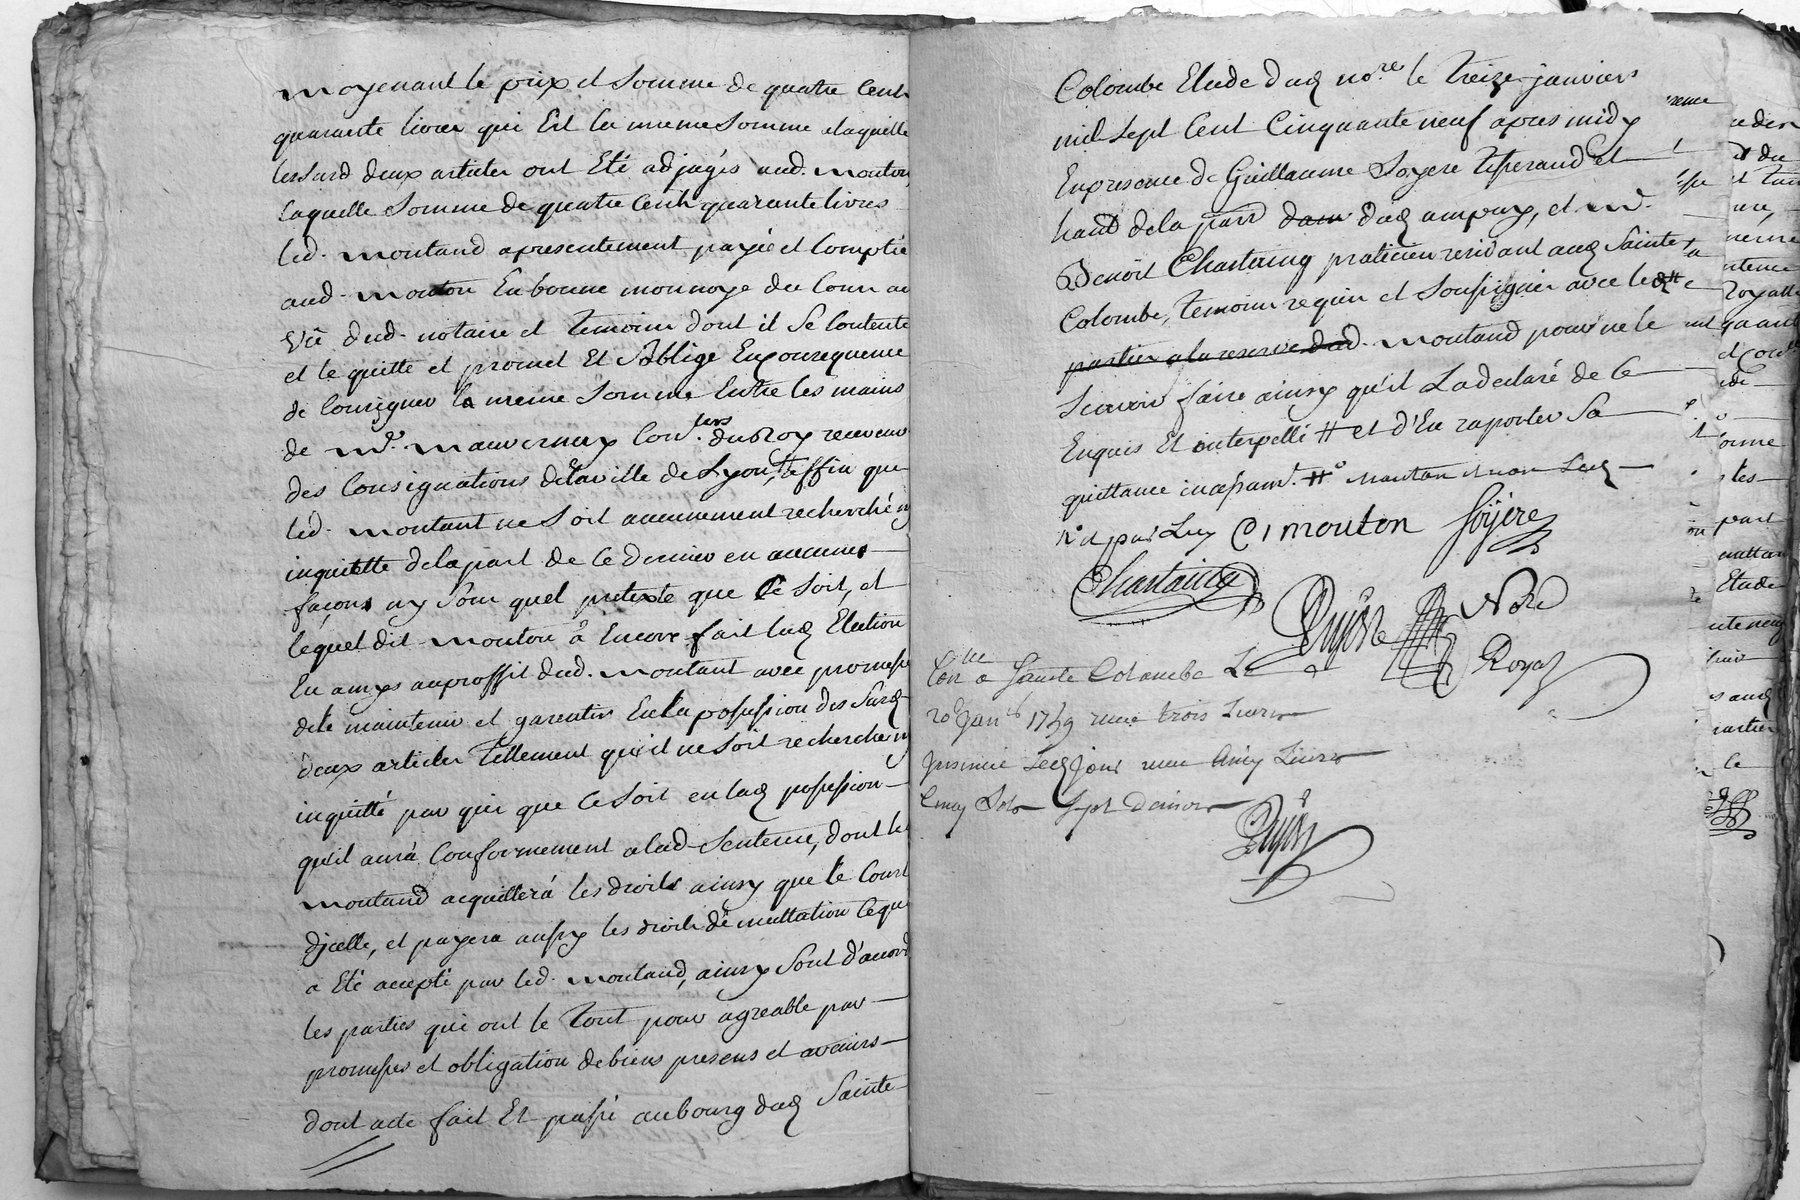 moyenant le prix et somme de quatre cent
quarante livres qui Est la meme somme a laquelle
lessusd deux articles ont Eté adjugés aud. mouton
laquelle somme de quatre cent quarante livres
led. moutand a presentement payée et Comptée
aud. mouton En bonne monnoye du Cour au
vû dud. notaire et temoins dont il Se Contente
et le quitte et promet Et S'oblige En Consequence
de Consigner la meme somme Entre les mains
de Mr. mauvernay Conlers. du Roy receveur
des Consignations de la ville de Lyon, affin que
led. moutant ne Soit aucunement recherché ny
inquietté de la part de Ce dernier en aucunes
façons ny Sour quel pretexte que Ce Soit, et
lequel dit mouton a Encore fait lad Election
En amys au proffit dud. moutant avec promesse
de le maintenir et garentir En la possession des Susd
deux articles tellement qu'il ne Soit recherché ny
inquietté par qui que Ce Soit en lad possession
qu'il aura Conformement a lad Sentence, dont le
moutand acquittera les droits ainsy que le Cout
d'icelle, et payera aussy les droits de muttation Ce qui
a Eté accepté par led. moutand, ainsy Sont d'accord
les parties qui ont le tout pour agreable par
promesses et obligation de biens presens et avenirs
dont acte fait Et passé au bourg dud Sainte
Colombe Etude dud nore le treize janviers
mil sept Cent Cinquante neuf apres midy
En presence de Guillaume Soyere tisserand et
habt de la parr dam dud ampuy, et Mr.
Benoit Chastaing praticien residant aud Sainte
Colombe, temoins requis et soussignés avec les
parties a la reserve dud. moutand pour ne le
sçavoir faire ainsy qu'il La declaré de Ce
Enquis Et interpellé # et d'En raporter Sa
quittance incessamt. # mouton et non led
par Luy C mouton Soyere
Chastaing
Dujast Nore
Royal
Conlle a Sainte Colombe Le
20 Janer 1759 reçu trois Livres
insinué led Jour reçu cinq Livres
cinq Sols Sept Deniers
Dujast